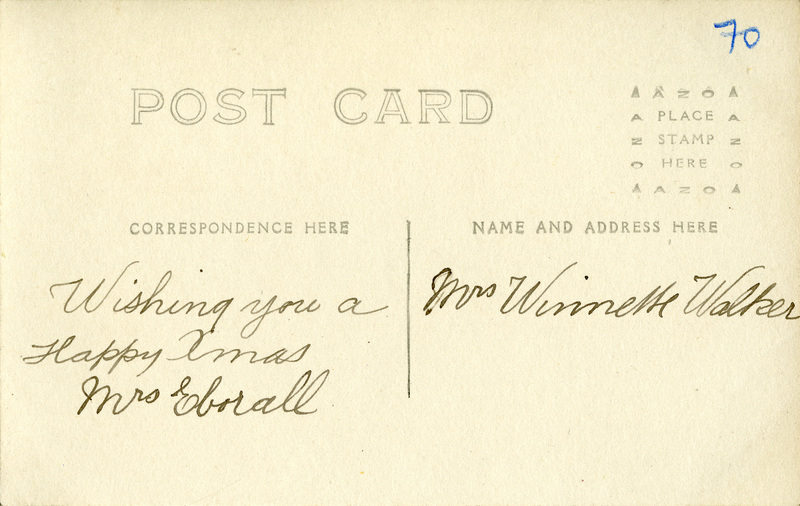 70
POST CARD
AZO
PLACE
STAMP
HERE
AZO
CORRESPONDENCE HERE
NAME AND ADDRESS HERE
Wishing you a
Happy Xmas
Mrs Eborall
Mrs Winnette Walker